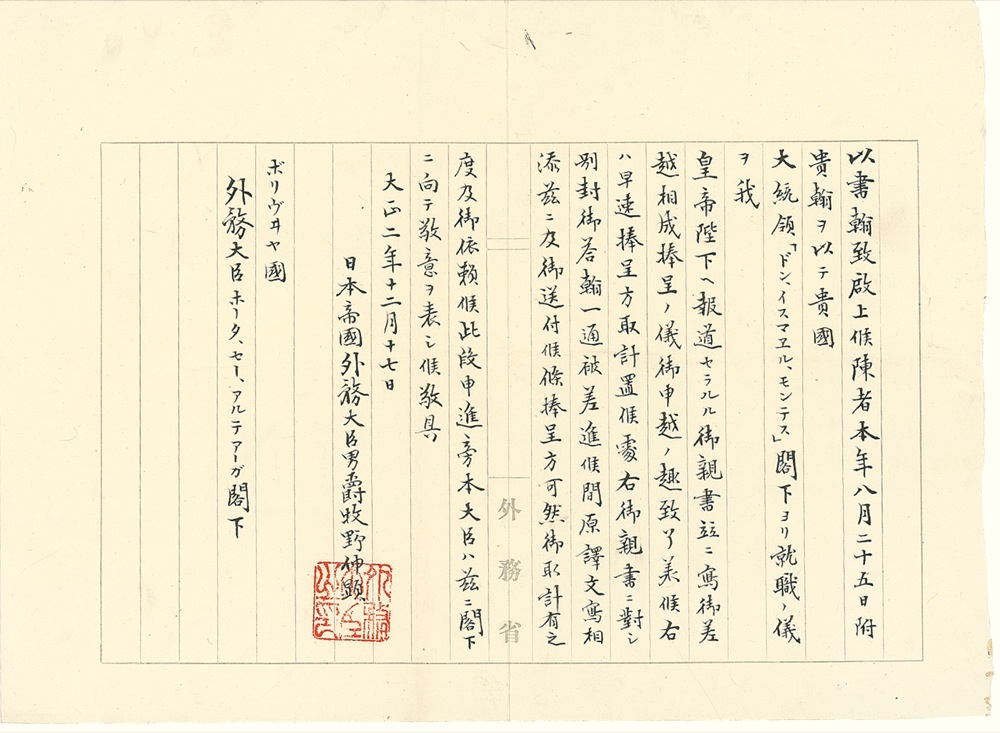 以書翰致啟上候陳者本年八月二十五日附
貴翰ヲ以テ貴國
大統領「ドン、イスマエル、モンテス」閣下ヨリ就職ノ儀
ヲ我
皇帝陛下ヘ報道セラルル御親書竝ニ寫御差
越相成捧呈ノ儀御申越ノ趣致了美候右
ハ早速捧呈方取計置候處右御親書ニ對シ
別封御答翰一通被差進候間原譯文寫相
添茲ニ及御送付候條捧呈方可然御取計有之
度及御依頼候此段申進旁本大臣ハ茲ニ閣下
ニ向テ敬意ヲ表シ候敬具
大正二年十二月十七日
日本帝國外務大臣男爵牧野伸顯
ボリヴヰヤ國
外務大臣ホータ、セー、アルテアーガ閣下
外務省